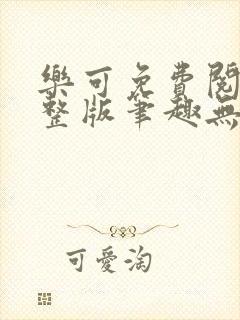 樂可免費閱
整版筆趣無
可愛淘